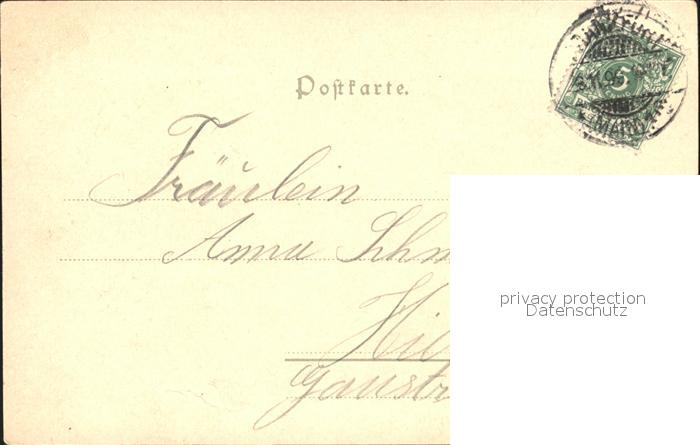 Postkarte.
5
MAINZ
Fräulein
Anna Schm
Hi
Gaustr
privacy protection
Datenschutz